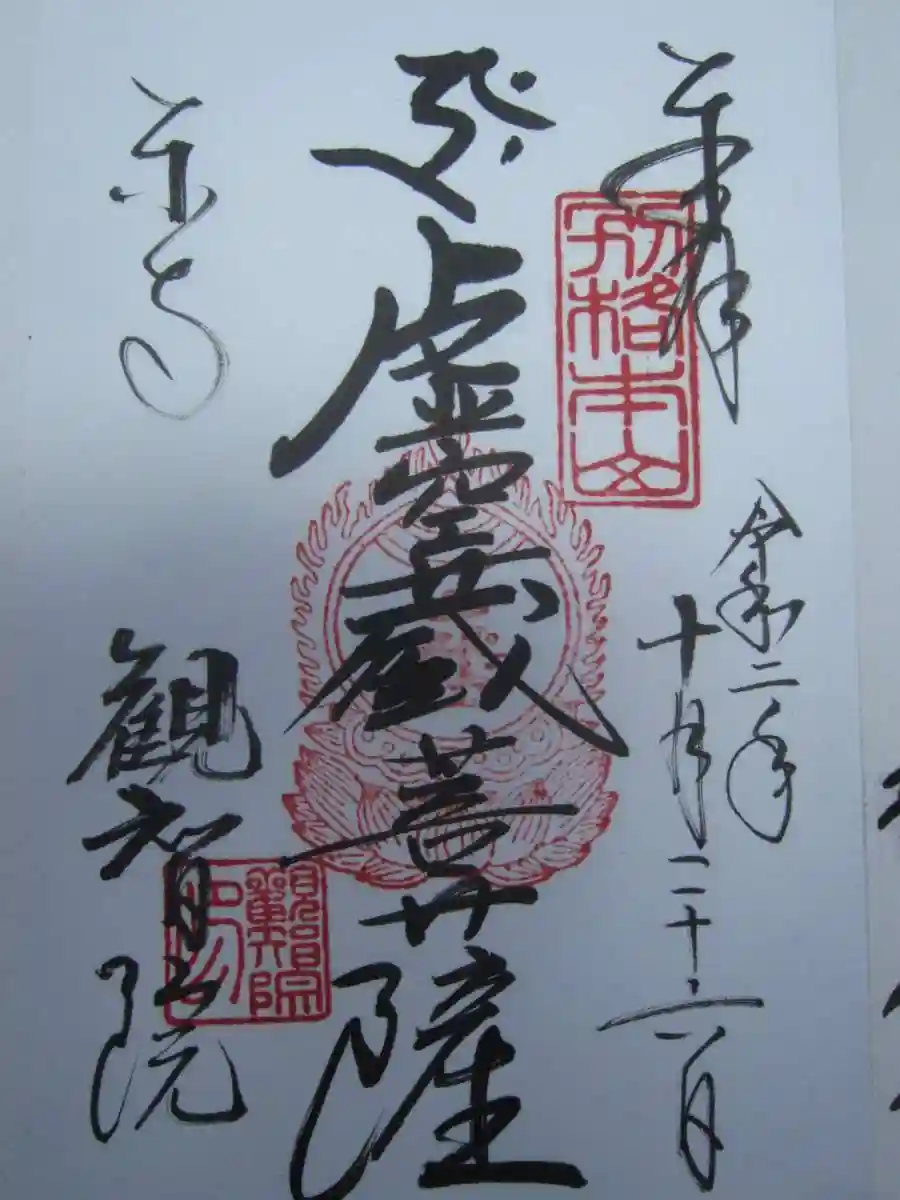 奉拝
令和二年
十月二十六日
別格本山
虚空蔵菩薩
東寺
観智院
観智院印